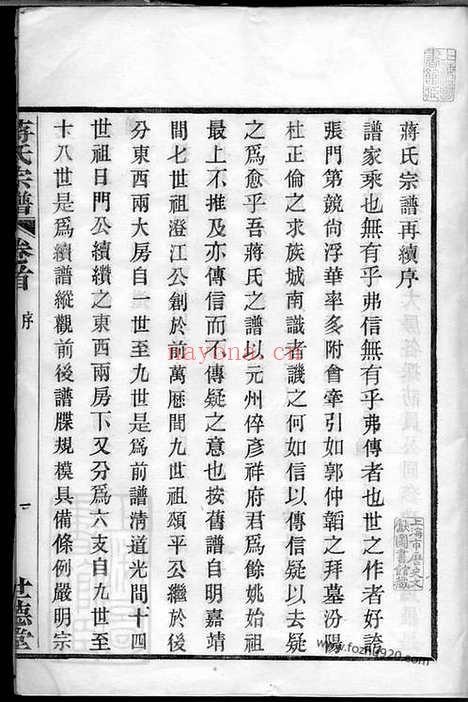 蔣氏宗譜再續序
譜家乘也無有乎弗信無有乎弗傳者也世之作者好誇
張門第競尙浮華率多附會牽引如郭仲韜之拜墓汾陽
杜正倫之求族城南識者譏之何如信以傳信疑以去疑
之爲愈乎吾蔣氏之譜以元州倅彥祥府君爲餘姚始祖
最上不推及亦傳信而不傳疑之意也按舊譜明嘉靖
間七世祖澄江公創於前萬厯間九世祖頌平公繼於後
分東西兩大房自一世至九世是爲前譜淸道光間十四
世祖日門公續纘之東西兩房下又分爲六支自九世至
十八世是爲續譜縱觀前後譜牒規模具備條例嚴明宗
蔣氏宗譜
卷首
序
一
世德堂
上海市歷史文獻圖書館藏
nayona.cn
www.fozhu920.com